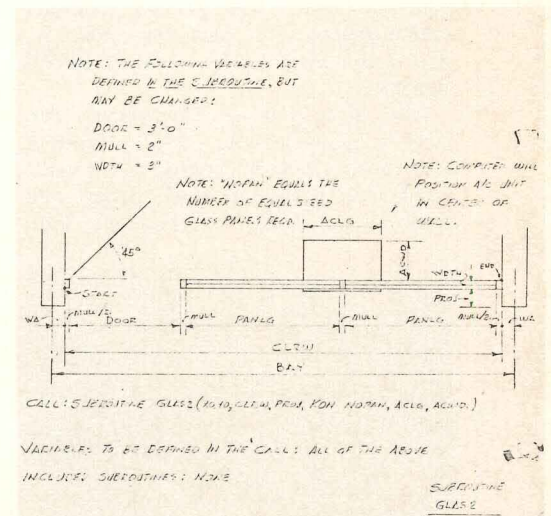 NOTE: THE FOLLOWING VARIABLES ARE
DEFINED IN THE SUBROUTINE, BUT
MAY BE CHANGED:
DOOR = 3'-0"
MULL = 2"
WDTH = 3"
NOTE: "NOPAN" EQUALS THE
NUMBER OF EQUAL SIZED
GLASS PANELS REQD.
NOTE: COMPUTER WILL
POSITION A/C UNIT
IN CENTER OF
WALL.
ACLG
ACWD
45°
START
WDTH
END
PROJ
WA
MULL/2
DOOR
MULL
PANLG
MULL
PANLG
MULL/2
WA
CLRW
BAY
CALL: SUBROUTINE GLAS2 (CLRW, PROJ, KON, NOPAN, ACLG, ACWD.)
VARIABLES TO BE DEFINED IN THE CALL: ALL OF THE ABOVE
INCLUDES SUBROUTINES: NONE
SUBROUTINE
GLAS2